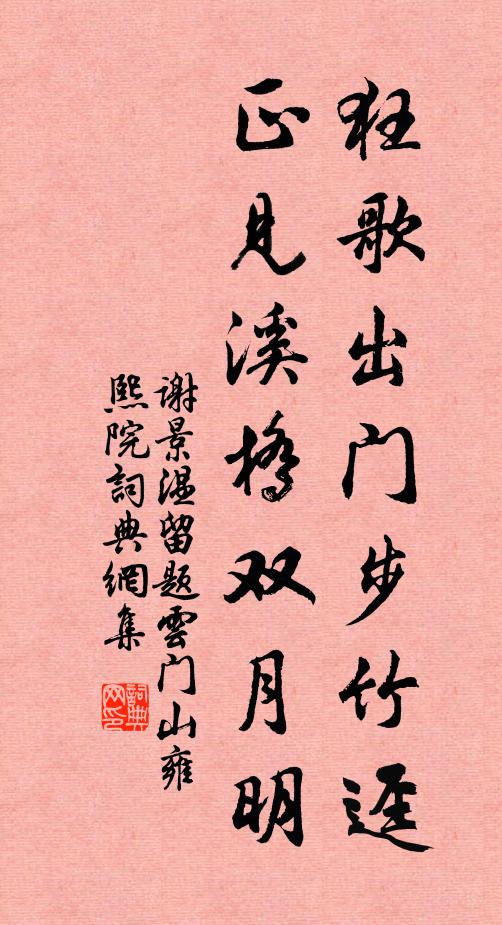 狂歌出门步竹迳
正见溪桥双月明
谢景温留题雲门山雍
熙院詞典網集
詞典
网印